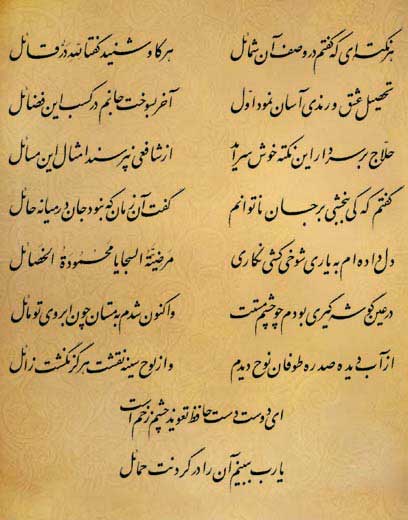 هر نکته‌ای که گفتم در وصف آن شمائل هر کاو شنید گفتا لله در قائل
تحصیل عشق و رندی آسان نمود اول آخر بسوخت جانم در کسب این فضائل
حلاج بر سر دار این نکته خوش سرآید از شافعی نپرسند امثال این مسائل
گفتم که کی ببخشی بر جان ناتوانم گفت آن زمان که نبود جان در میانه حائل
دل داده‌ام به یاری شوخی کشی نگاری مرضیّةُ السجایا محمودةُ الخصائل
در عین گوشه‌گیری بودم چو چشم مستت واکنون شدم به مستان چون ابروی تو مائل
از آب دیده صد ره طوفان نوح دیدم واز لوح سینه نقشت هرگز نگشت زائل
ای دوست دست حافظ تعویذ چشم زخم است
یارب ببینم آن را در گردنت حمائل